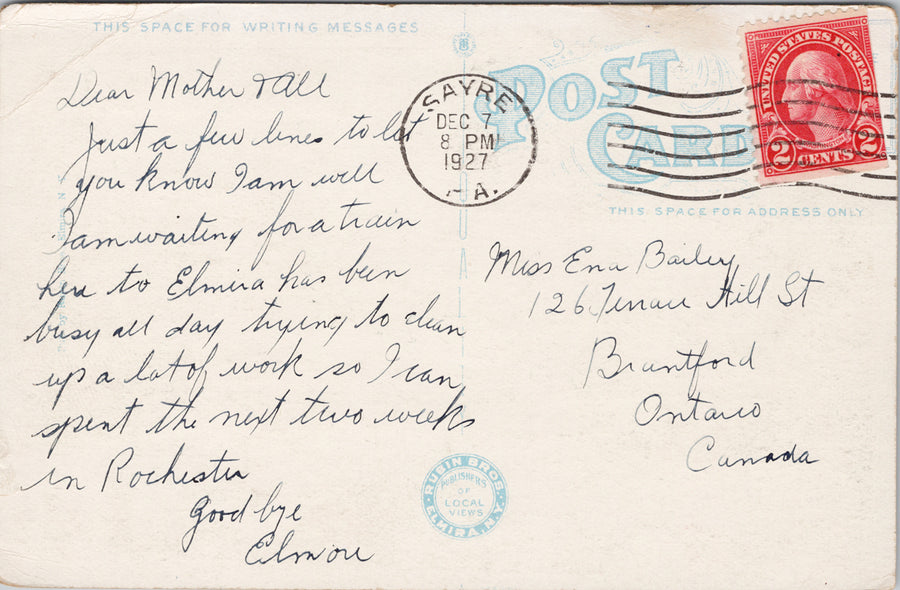 THIS SPACE FOR WRITING MESSAGES
Dear Mother & All
Just a few lines to let
you know I am well
I am waiting for a train
here to Elmira has been
busy all day trying to clean
up a lot of work so I can
spent the next two weeks
in Rochester
Good bye
Elmore
POST
CARD
SAYRE
DEC 7
8 PM
1927
A.
UNITED STATES POSTAGE
2 CENTS 2
THIS SPACE FOR ADDRESS ONLY
Miss Ena Bailey
126 Terrace Hill St
Brantford
Ontario
Canada
RUBIN BROS.
PUBLISHERS
OF
LOCAL
VIEWS
ELMIRA, N.Y.